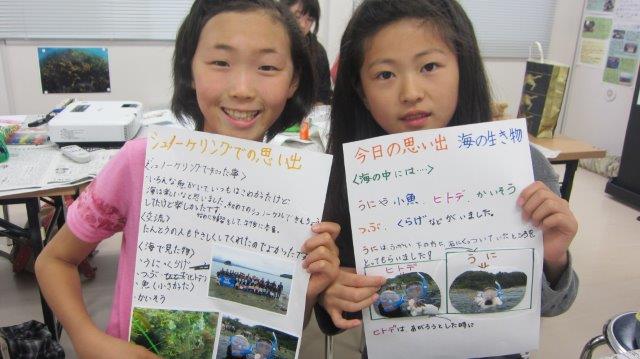 シュノーケリングでの思い出
〈シュノーケリングできづいた事〉
いろんな魚がいて、いつもはこわかったけど
海は楽しいなと思いました。初めてのシュノーケルでさむ
したけど楽しかったです。
〈交流〉
たんとうの人もやさしくしてくれたのでよかったです
〈海で見た物〉
・うに・くらげ
・つぶ・ヒトデ
・魚(小さかた)
・かいそう
今日の思い出 海の生き物
〈海の中には…〉
うにや小魚、ヒトデ、かいそう
つぶ、くらげなどがいました。
うには、うかい、下の方に、石にくっついていたところを
とってもらいました!
ヒトデ
うに
ヒトデは、あがろうとした時に